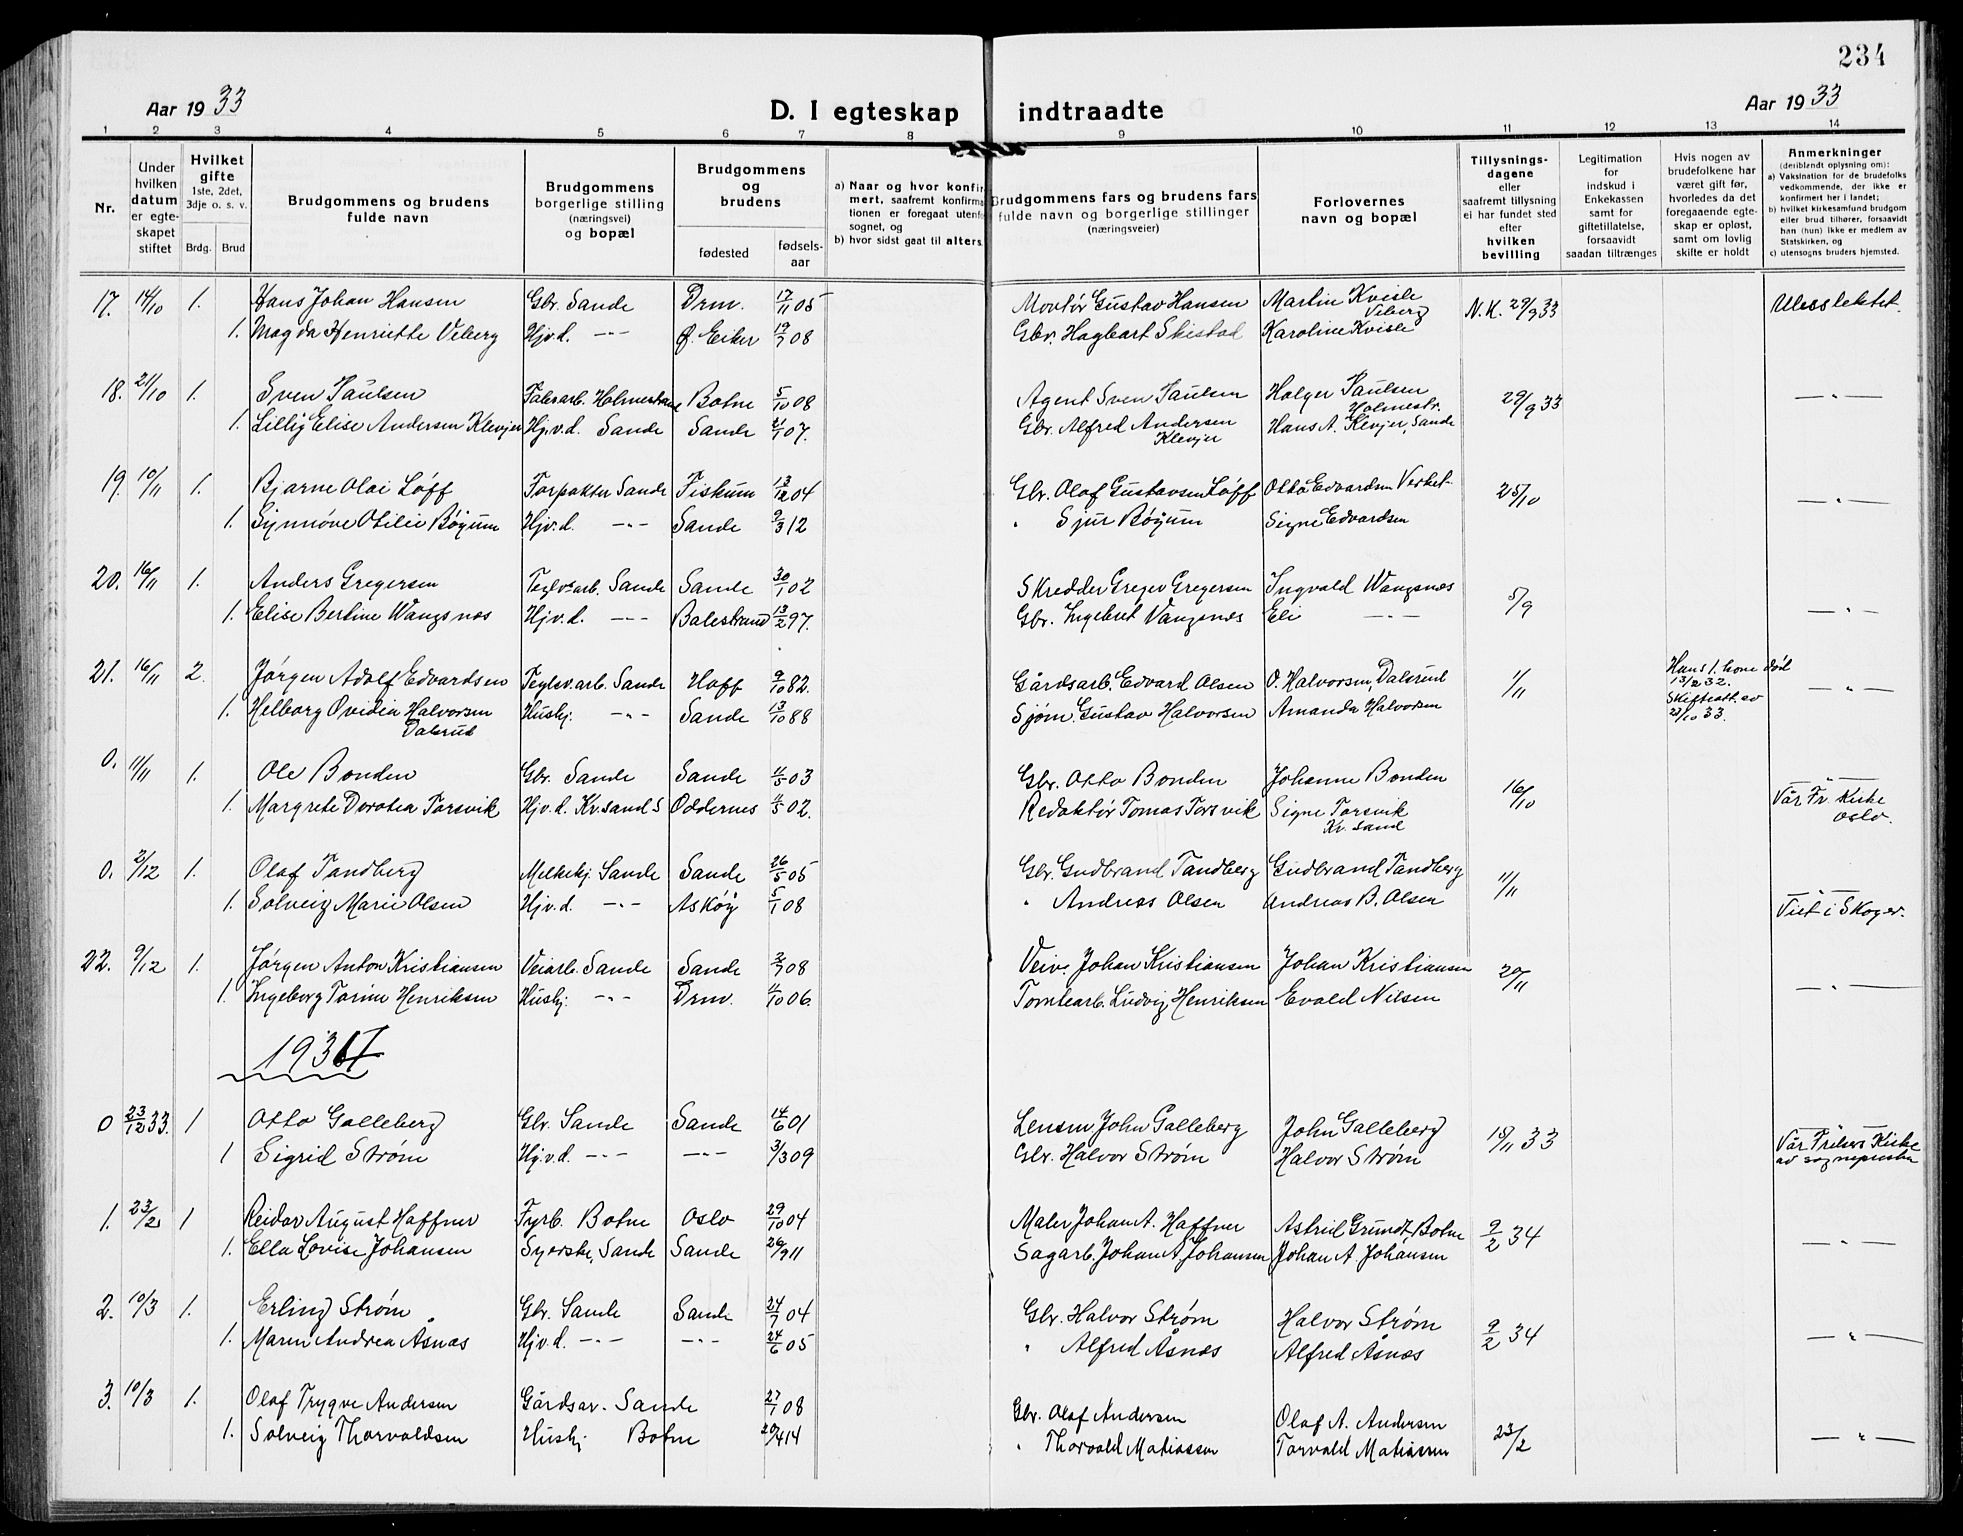 234
Aar 1933 D. I egteskap indtraadte Aar 1933
1 2 3 4 5 6 7 8 9 10 11 12 13 14
Nr.
Under hvilken datum er egteskapet stiftet
Hvilket gifte 1ste, 2det, 3dje o. s. v.
Brdg. Brud
Brudgommens og brudens fulde navn
Brudgommens borgerlige stilling (næringsvei) og bopæl
Brudgommens og brudens
fødested fødselsaar
a) Naar og hvor konfirmert, saafremt konfirmationen er foregaat utenfor sognet, og
b) hvor sidst gaat til alters.
Brudgommens fars og brudens fars fulde navn og borgerlige stillinger (næringsveier)
Forlovernes navn og bopæl
Tillysningsdagene eller saafremt tillysning ei har fundet sted efter hvilken bevilling
Legitimation for indskud i Enkekassen samt for giftetillatelse, forsaavidt saadan tiltrænges
Hvis nogen av brudefolkene har været gift før, hvorledes da det foregaaende egteskap er opløst, samt om lovlig skifte er holdt
Anmerkninger (deriblendt oplysning om):
a) Vaksination for de brudefolks vedkommende, der ikke er konfirmert her i landet;
b) hvilket kirkesamfund brudgom eller brud tilhører, forsaavidt han (hun) ikke er medlem av Statskirken, og
c) utensogns bruders hjemsted.
17. 14/10 1. Hans Johan Hansen Gbr. Sande Drm. 17/11 05 Montør Gustav Hansen Martin Kvisle N.K. 29/9 33 Ubesslektet.
1. Magda Henriette Viberg Hjv.d. -"- Ø. Eiker 19/7 08 Gbr. Hagbart Skistad Viberg Karoline Kvisle
18. 21/10 1. Sven Paulsen Fabrarb. Holmestrand Botne 5/10 08 Agent Sven Paulsen Holger Paulsen Holmestr. 29/9 33 -"-
1. Lilly Elise Andersen Klevjer Hjv.d. Sande Sande 21/1 07. Gbr. Alfred Andersen Klevjer Hans A. Klevjer, Sande
19. 10/11 1. Bjarne Olai Løff Forpakter Sande Fiskum 13/12 04 Gbr. Olaf Gustavsen Løff Otto Edvardsen Verket 25/10 -"-
1. Synnøve Otilie Bøyum Hjv.d. -"- Sande 9/3 12 " Sjur Bøyum Signe Edvardsen
20. 16/11 1. Anders Gregersen Teglv.arb. Sande Sande 30/1 02 Skredder Greger Gregersen Ingvald Wangsnes 5/9 -"-
1. Elise Bertine Wangsnes Hjv.d. -"- Balestrand 13/2 97. Gbr. Ingebret Vangsnes Eli -"-
21. 16/11 2. Jørgen Adolf Edvardsen Teglsv.arb. Sande Hoff 9/10 82. Gårdsarb. Edvard Olsen O. Halvorsen, Dalsrud 1/11 Hans 1. kone død 13/2 32. -"-
1. Helborg Ovidia Halvorsen Dalsrud Hushj. -"- Sande 13/10 88 Sjøm. Gustav Halvorsen Amanda Halvorsen Skifteatt. av 23/10 33.
0. 11/11 1. Ole Bonden Gbr. Sande Sande 11/5 03 Gbr. Otto Bonden Johanne Bonden 16/10 -"-
1. Margrete Dorotea Torsvik Hjv.d. Kr.sand S Oddernes 11/5 02. Redaktør Tomas Torsvik Signe Torsvik Kr. sand Vår Fr. Kirke Oslo.
0. 2/12 1. Olaf Tandberg Melkekj. Sande Sande 26/5 05 Gbr. Gudbrand Tandberg Gudbrand Tandberg 11/11 -"-
1. Solveig Marie Olsen Hjv.d. -"- Askøy 5/1 08 " Andreas Olsen Andreas B. Olsen Viet i Skoger.
22. 9/12 1. Jørgen Anton Kristiansen Veiarb. Sande Sande 2/7 08 Veiv. Johan Kristiansen Johan Kristiansen 20/11 -"-
1. Ingeborg Torine Henriksen Hushj. -"- Drm. 11/10 06. Tomtearb. Ludvig Henriksen Evald Nilsen
1934
0 23/12 33. 1 Otto Galleberg Gbr. Sande Sande 14/6 01 Lensm John Galleberg John Galleberg 15/11 33 -"-
1 Sigrid Strøm Hjv.d. -"- -"- 3/3 09 Gbr. Halvor Strøm Halvor Strøm Vår Frelsers Kirke av sognepresten
1. 23/2 1 Reidar August Haffner Fyrb. Botne Oslo 29/10 04 Maler Johan A. Haffner Astrid Grundt, Botne 9/2 34 -"-
1. Ella Lovise Johansen Syerske, Sande Sande 26/9 11 Sagarb. Johan A Johansen Johan A. Johansen
2. 10/3 1. Erling Strøm Gbr. Sande Sande 24/7 04 Gbr. Halvor Strøm Halvor Strøm 9/2 34 -"-
1. Maren Andrea Åsnæs Hjv.d. -"- -"- 24/6 05 " Alfred Åsnæs Alfred Åsnæs
3. 10/3 1. Olaf Trygve Andersen Gårdsar. Sande 27/1 08 Gbr. Olaf Andersen Olaf A. Andersen 23/2 -"-
1. Solveig Thorvaldsen Hushj Botne 20/4 14 " Thorvald Matiassen Torvald Matiassen